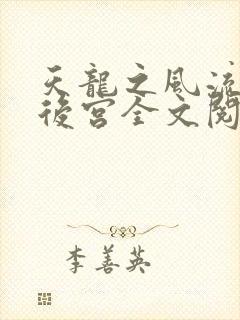 天龍之風流
後宮全文閱
李善英